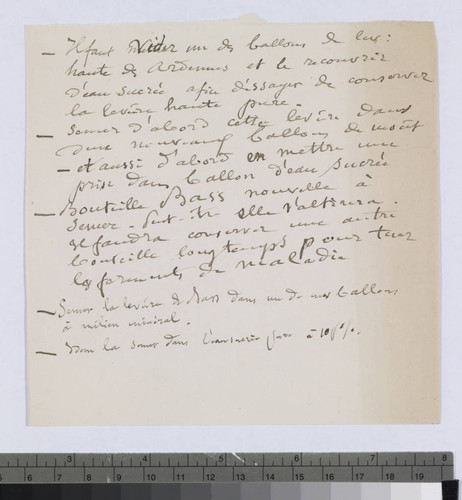 — Il faut vider un des ballons de lev:
haute des Ardennes et le recouvrir
d'eau sucrée afin d'essayer de conserver
la levûre haute pure.
— Semer d'abord cette levûre dans
deux nouveaux ballons de moût
— et aussi d'abord en mettre une
prise dans ballon d'eau sucrée
— Bouteille Bass nouvelle à
semer. Peut-être elle s'altèrera.
Il faudra conserver une autre
bouteille longtemps pour tuer
les ferments de maladie
— Semer la levûre de Bass dans un de nos ballons
à milieu minéral.
— la semer dans l'eau sucrée pure à 10 p%.
3 4 5 6 7 8
5 6 7 8 9 10 11 12 13 14 15 16 17 18 19